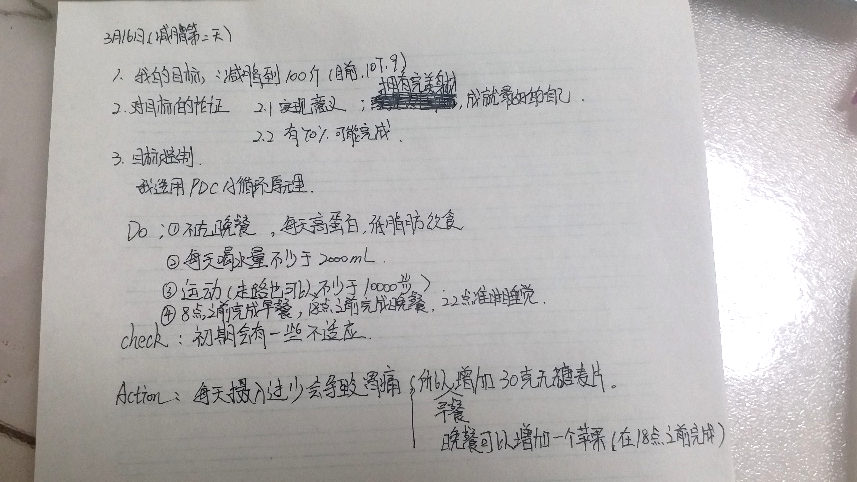 3月16日(减脂第二天)
1. 我的目标:减脂到100斤(目前107.9)
拥有完美身材
2. 对目标的论证 2.1 实现意义: ,成就最好的自己.
2.2 有70%可能完成.
3. 目标控制.
我选用PDCA循环原理.
Do:①不吃晚餐,每天高蛋白,低脂肪饮食
②每天喝水量不少于2000mL.
③运动(走路也可以,不少于10000步)
④8点之前完成早餐,18点之前完成晚餐,22点准时睡觉.
check:初期会有一些不适应.
Action:每天摄入过少会导致胃痛 所以增加30克无糖麦片.
早餐
晚餐可以增加一个苹果(在18点之前完成)